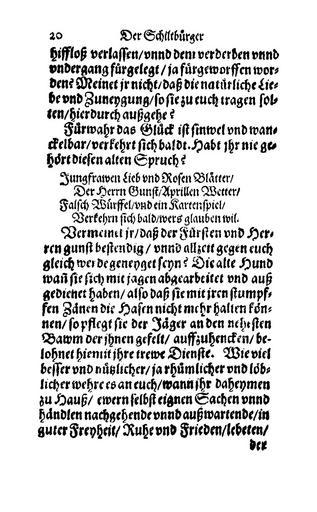 20 Der Schiltbürger
hiffloß verlassen/vnnd dem verderben vnnd
vndergang fürgelegt/ja fürgeworffen wor-
dene Meinet jr nicht/daß die natürliche Lie-
be vnd Zuneygung/so sie zu euch tragen sol-
ten/hierdurch außgehe?
Fürwahr das Glück ist sinwel vnd wan-
ckelbar/verkehrt sich baldt. Habt jhr nie ge-
hört diesen alten Spruch?
Jungfrawen Lieb vnd Rosen Blätter/
Der Herrn Gunst/Aprillen Wetter/
Falsch Würffel/vnd ein Kartenspiel/
Verkehrn sich bald/wers glauben wil.
Vermeinet jr/daß der Fürsten vnd Her-
ren gunst bestendig/ vnnd allzeit gegen euch
gleich werde geneyget seyn? Die alte Hund
wañ sie sich mit jagen abgearbeitet vnd auß
gedienet haben/also daß sie mit jren stumpf-
fen Zänen die Hasen nicht mehr halten kön-
nen/so pflegt sie der Jäger an den nehesten
Bawm der jhnen gefelt/ auffzuhencken/ be-
lohnet hiemit jhre trewe Dienste. Wie viel
besser vnd nützlicher/ja rhümlicher vnd löb-
licher wehre es an euch/wann jhr daheymen
zu Hauß/ ewern selbst eignen Sachen vnnd
händlen nachgehende vnnd außwartende/in
guter Freyheit/ Ruhe vnd Frieden/lebeten/
der